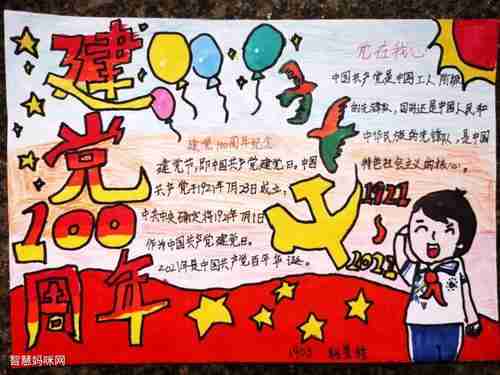 建党100周年
党在我心
中国共产党是中国工人阶级
的先锋队，同时还是中国人民和
中华民族的先锋队，是中国
特色社会主义的核心。
建党100周年纪念
建党节，即中国共产党建党日。中国
共产党于1921年7月23日成立，
中共中央确定将1921年7月1日
作为中国共产党建党日。
2021年是中国共产党百年华诞。
1921
2021
1903
智慧妈咪网